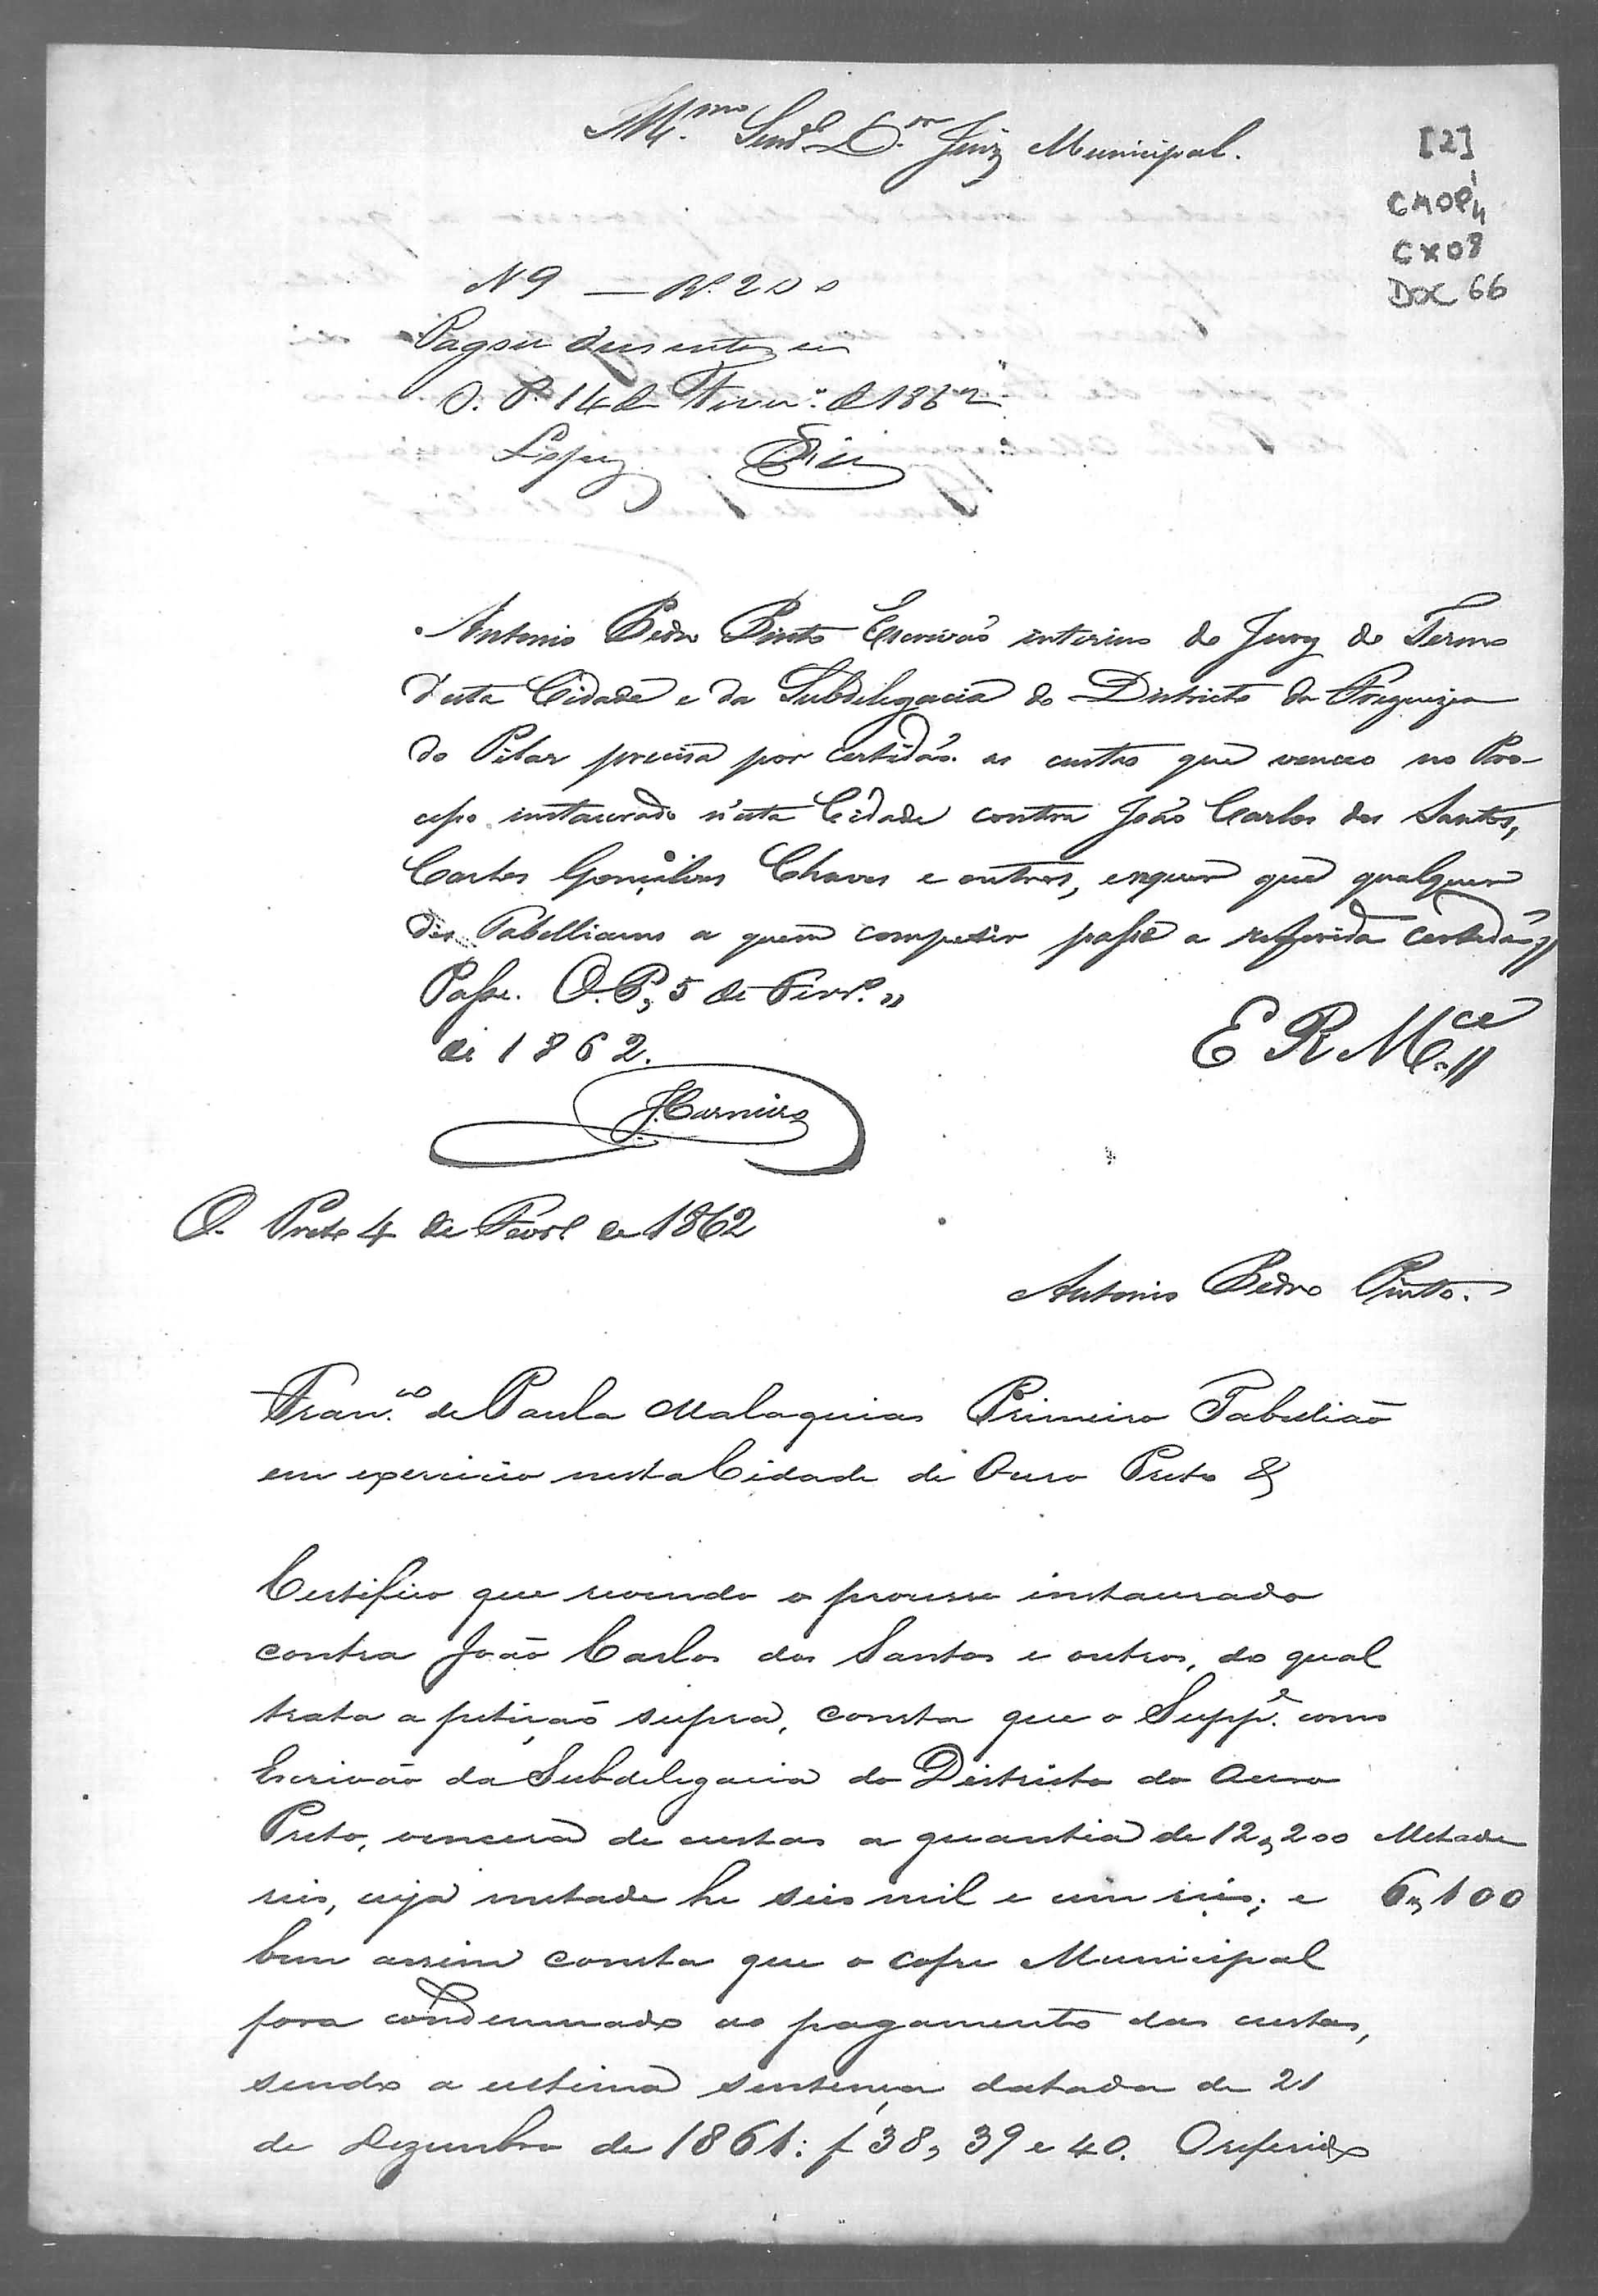 Illmo. Senr. Dor. Juiz Municipal.
[2]
CMOP
CX08
DOC 66
N 9 — Rs. 200
Pagou duzentos rs
O. P. 14 de Fever.o de 1862
Lopes
Antonio Pedro Pinto Escrivaõ interino do Jury do Termo
d'esta Cidade e da Subdelegacia do Districto da Freguezia
do Pilar precisa por certidaõ as custas que venceo no Pro-
cesso instaurado n'esta Cidade contra Joaõ Carlos dos Santos,
Carlos Gonçalves Chaves e outros, e requer que qualquer
dos Tabelliaens a quem competir passe a referida certidaõ
Passe. O. P., 5 de Fevr.o
de 1862.
E R Mce.
J. Carneiro
O. Preto 4 de Fevr.o de 1862
Antonio Pedro Pinto.
Fran.co de Paula Malaquias Primeiro Tabelliaõ
em exercicio nesta Cidade de Ouro Preto &
Certifico que revendo o processo instaurado
contra Joaõ Carlos dos Santos e outros, do qual
trata a petiçaõ supra, consta que o Supp.e como
Escrivaõ da Subdelegacia do Districto do Ouro
Preto, vencera de custas a quantia de 12,200 Metade
reis, cuja metade he seis mil e cem reis; e 6,100
bem assim consta que o cofre Municipal
fora condemnado ao pagamento das custas,
sendo a ultima sentença datada de 21
de Dezembro de 1861: f 38, 39 e 40. O referido